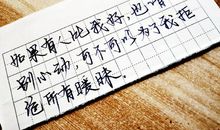 如果有人比我好，也请
别心动，可不可以为了我拒
绝所有暧昧.